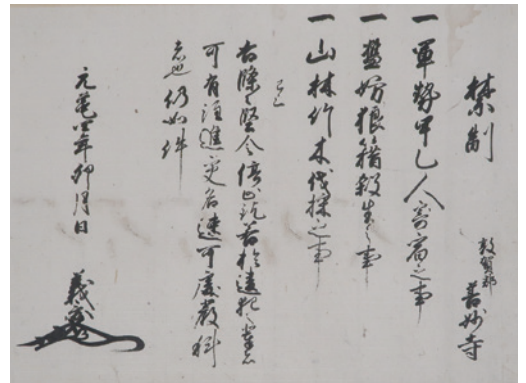 禁制
敦賀郡
善妙寺
一軍勢甲乙人寄宿之事
一濫妨狼藉殺生之事
一山林竹木伐採之事
已上
右條々堅令停止訖若於違犯之輩者
可有注進交名速可處嚴科
者也仍如件
元亀四年卯月日
義景